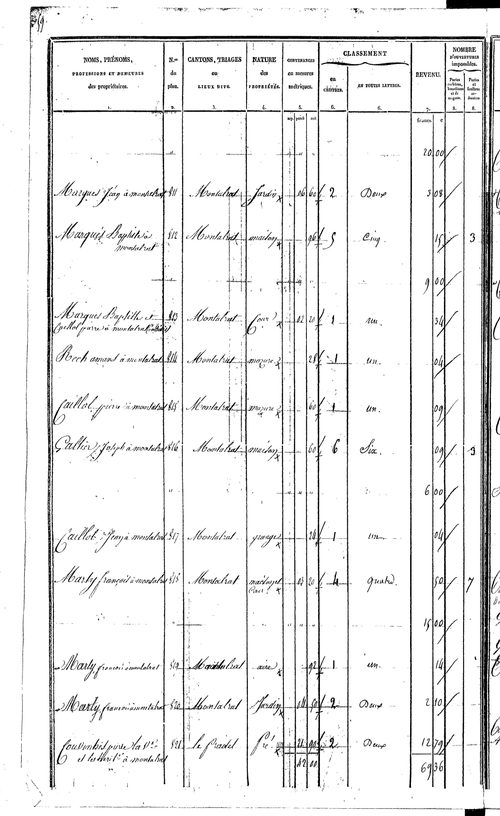 NOMS, PRÉNOMS, PROFESSIONS ET DEMEURES des propriétaires.
N.os du plan.
CANTONS, TRIAGES ou LIEUX DITS.
NATURE des PROPRIÉTÉS.
CONTENANCES en mesures métriques.
CLASSEMENT
en chiffres.
EN TOUTES LETTRES.
REVENU.
NOMBRE D'OUVERTURES imposables.
1. 2. 3. 4. 5. 6. 6. 7. 8. 8.
francs. c
20 00
Marques Jean à montatrat 811 Montatrat Jardin 06 60 2 Deux 3 08
Marques Baptiste à montatrat 812 Montatrat maison 96 5 Cinq 15 3
9 00
Marques Baptiste et
Caillol pierre à montatrat 813 Montatrat Cour 02 20 1 un 34
amant à montatrat 814 Montatrat mazure 28 1 un. 04
Caillol pierre à montatrat 815 Montatrat mazure 60 1 un. 09
Galtier Joseph à montatrat 816 Montatrat maison 60 6 Six. 09 3
6 00
Caillol Jean à montatrat 817 Montatrat 28 1 un 04
Marty françois à montatrat 818 Montatrat 03 20 4 quatre. 50 7
15 00
Marty francois à montatrat 819 Montatrat aire 92 1 un. 14
Marty francois à montatrat 820 Montatrat Jardin 04 50 2 Deux 2 10
pierre à la
à montatrat 821 le Pradel Pré 21 90 2 Deux 12 79
42 00
69 36